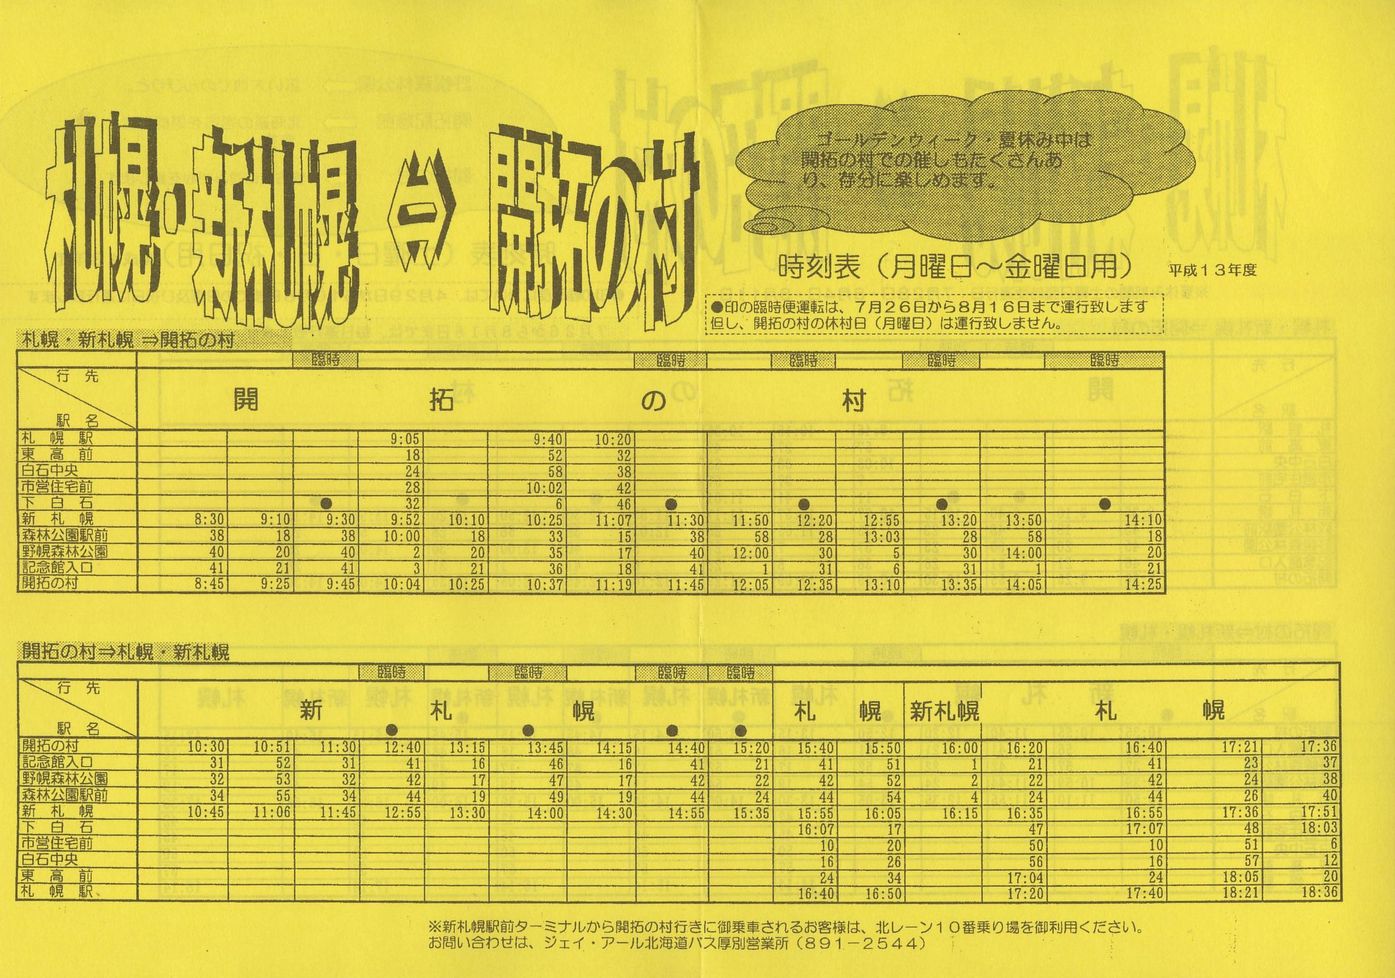 札幌・新札幌 ⇔ 開拓の村
ゴールデンウィーク・夏休み中は
開拓の村での催しもたくさんあ
り、存分に楽しめます。
時刻表（月曜日～金曜日用） 平成１３年度
●印の臨時便運転は、７月２６日から８月１６日まで運行致します
但し、開拓の村の休村日（月曜日）は運行致しません。
札幌・新札幌 ⇒開拓の村
臨時 臨時 臨時 臨時 臨時
行 先
開 拓 の 村
駅 名
札 幌 駅 9:05 9:40 10:20
東 高 前 18 52 32
白石中央 24 58 38
市営住宅前 28 10:02 42
下 白 石 ● 32 6 46 ● ● ● ●
新 札 幌 8:30 9:10 9:30 9:52 10:10 10:25 11:07 11:30 11:50 12:20 12:55 13:20 13:50 14:10
森林公園駅前 38 18 38 10:00 18 33 15 38 58 28 13:03 28 58 18
野幌森林公園 40 20 40 2 20 35 17 40 12:00 30 5 30 14:00 20
記念館入口 41 21 41 3 21 36 18 41 1 31 6 31 1 21
開拓の村 8:45 9:25 9:45 10:04 10:25 10:37 11:19 11:45 12:05 12:35 13:10 13:35 14:05 14:25
開拓の村⇒札幌・新札幌
臨時 臨時 臨時 臨時
行 先
新 札 幌 札 幌 新札幌 札 幌
駅 名 ● ● ● ●
開拓の村 10:30 10:51 11:30 12:40 13:15 13:45 14:15 14:40 15:20 15:40 15:50 16:00 16:20 16:40 17:21 17:36
記念館入口 31 52 31 41 16 46 16 41 21 41 51 1 21 41 23 37
野幌森林公園 32 53 32 42 17 47 17 42 22 42 52 2 22 42 24 38
森林公園駅前 34 55 34 44 19 49 19 44 24 44 54 4 24 44 26 40
新 札 幌 10:45 11:06 11:45 12:55 13:30 14:00 14:30 14:55 15:35 15:55 16:05 16:15 16:35 16:55 17:36 17:51
下 白 石 16:07 17 47 17:07 48 18:03
市営住宅前 10 20 50 10 51 6
白石中央 16 26 56 16 57 12
東 高 前 24 34 17:04 24 18:05 20
札 幌 駅 16:40 16:50 17:20 17:40 18:21 18:36
※新札幌駅前ターミナルから開拓の村行きに御乗車されるお客様は、北レーン１０番乗り場を御利用ください。
お問い合わせは、ジェイ・アール北海道バス厚別営業所（８９１－２５４４）